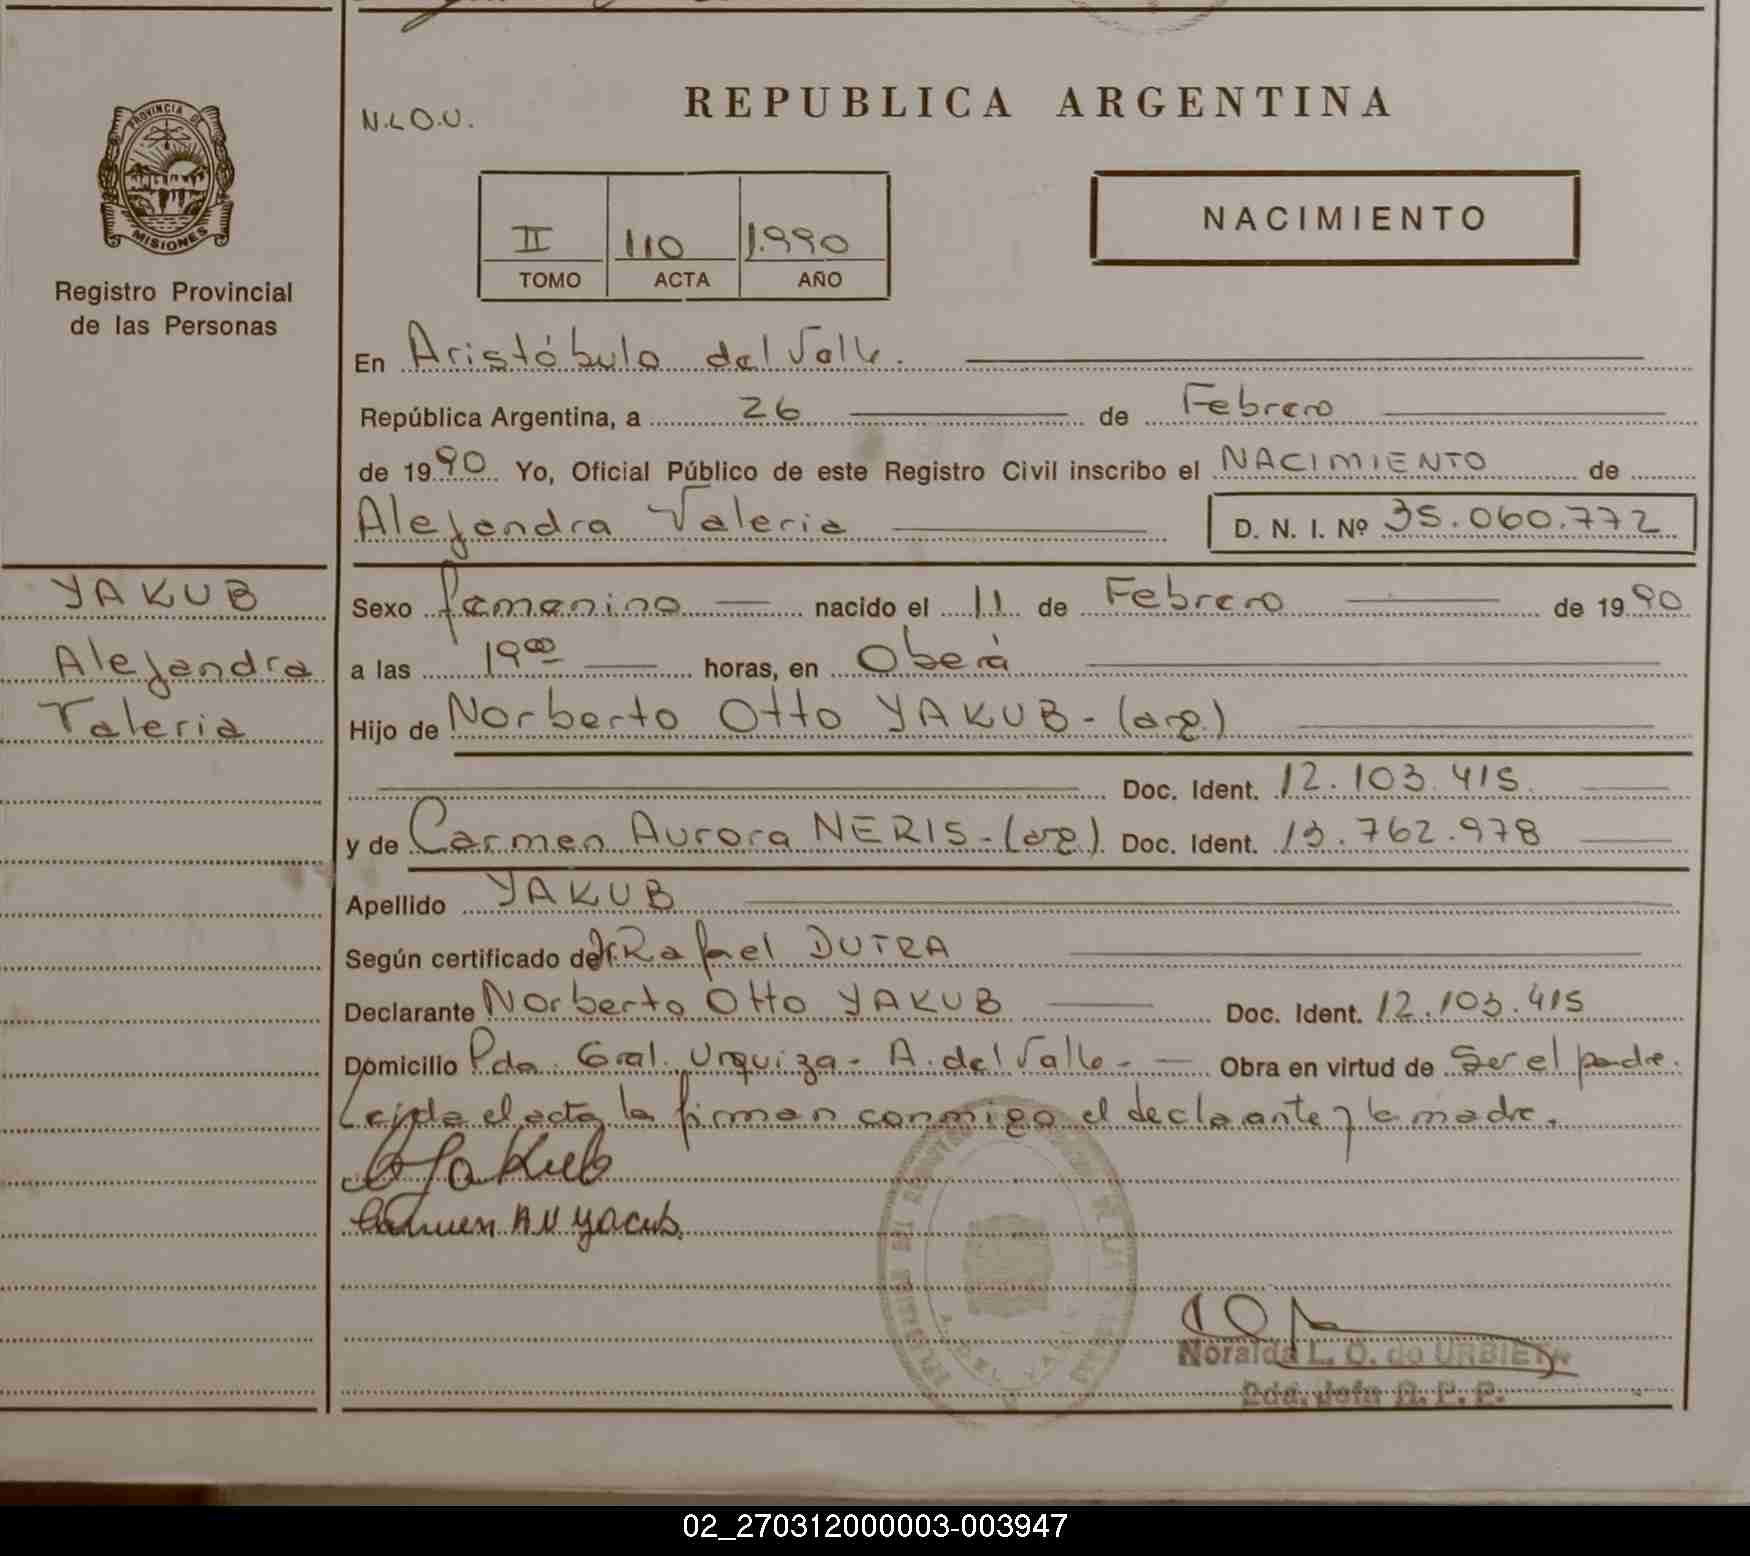 PROVINCIA DE
MISIONES
Registro Provincial
de las Personas
YAKUB
Alejandra
Valeria
N.L.O.U.
REPUBLICA ARGENTINA
II 110 1.990
TOMO ACTA AÑO
NACIMIENTO
En Aristóbulo del Valle.
República Argentina, a 26 de Febrero
de 1990 Yo, Oficial Público de este Registro Civil inscribo el NACIMIENTO de
Alejandra Valeria D. N. I. Nº 35.060.772
Sexo femenino nacido el 11 de Febrero de 1990
a las 19 00 horas, en Oberá
Hijo de Norberto Otto YAKUB - (arg.)
Doc. Ident. 12.103.415
y de Carmen Aurora NERIS - (arg.) Doc. Ident. 13.762.978
Apellido YAKUB
Según certificado de Dr. Rafael DUTRA
Declarante Norberto Otto YAKUB Doc. Ident. 12.103.415
Domicilio Pda. Gral. Urquiza - A. del Valle - Obra en virtud de ser el padre.
Leída el acta, la firman conmigo el declarante y la madre.
Yakub
Carmen A N Yacub.
Noralda L. O. de URBIETA
R. P. P.
02_270312000003-003947